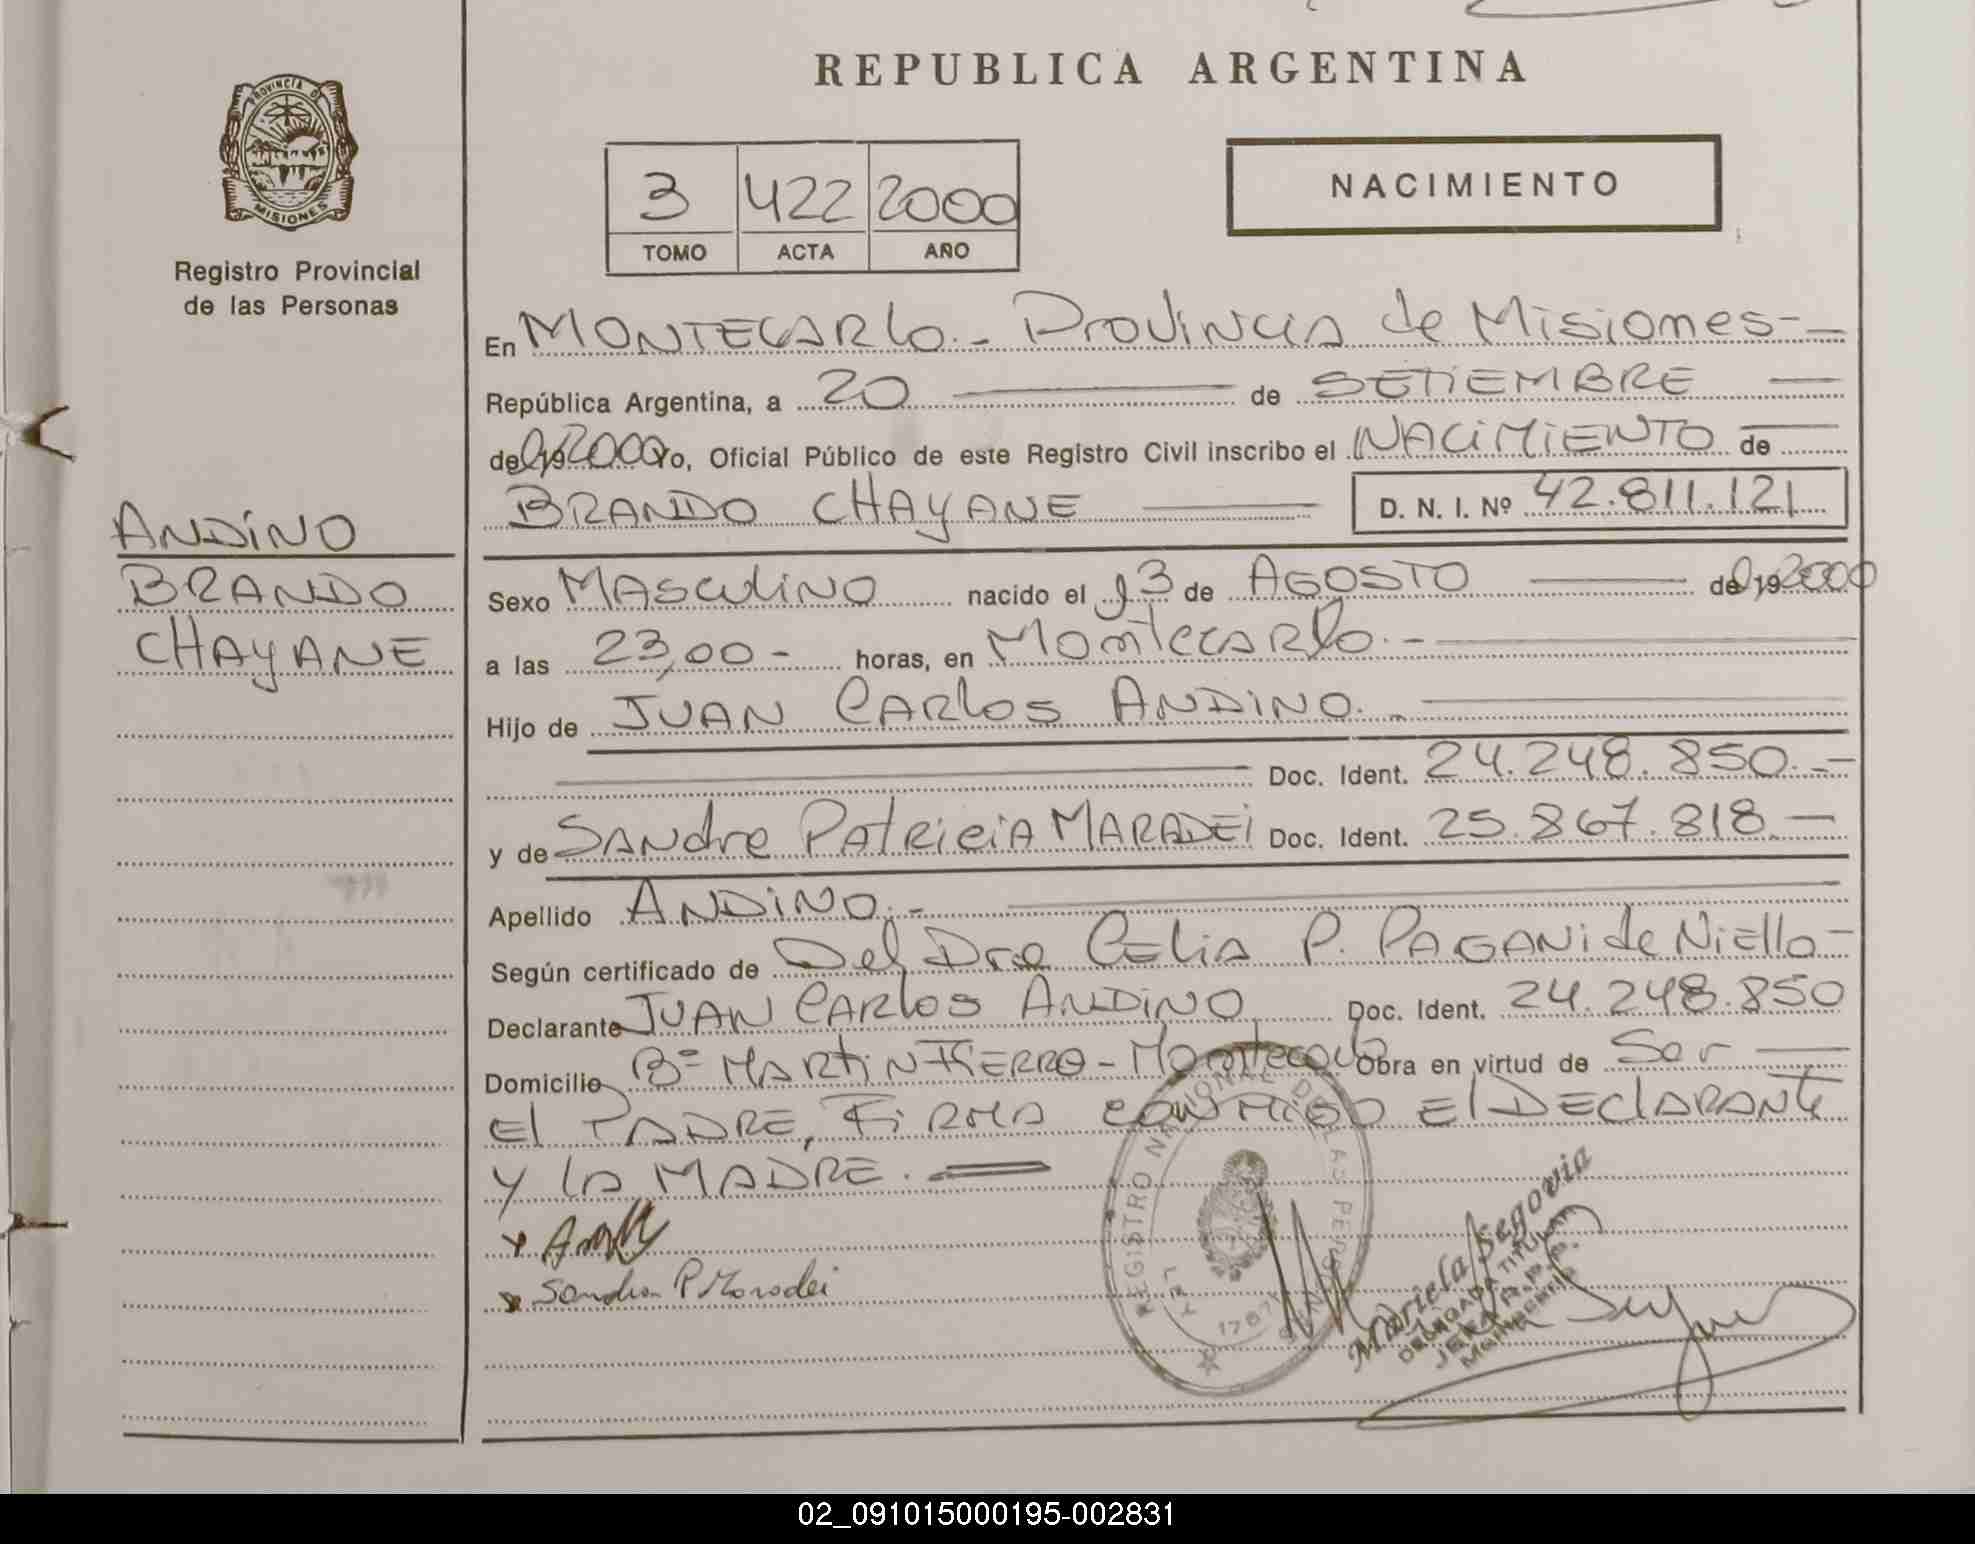 REPUBLICA ARGENTINA
PROVINCIA DE
MISIONES
Registro Provincial
de las Personas
3 422 2000
TOMO ACTA AÑO
NACIMIENTO
En MONTECARlo.- Provincia de Misiones-
República Argentina, a 20 de SETIEMBRE
del 19 2000 Yo, Oficial Público de este Registro Civil inscribo el NACIMIENTO de
BRANDO CHAYANE D. N. I. Nº 42.811.121
ANDINO
BRANDO
CHAYANE
Sexo MAScuLiNO nacido el 13 de AGOSTO del 19 2000
a las 23,00- horas, en MontecARlo.-
Hijo de JUAN CARlos ANDINO.-
Doc. Ident. 24.248.850.-
y de SANdra PatRiciA MARADEi Doc. Ident. 25.867.818.-
Apellido ANDiNO.-
Según certificado de Del Dra CELiA P. PAGANi de Niello-
Declarante JUAN CARlos ANDINO Doc. Ident. 24.248.850
Domicilio Bº MARtiN FiERRO - Montecarlo Obra en virtud de Ser
El PADRE, FiRMA CONMIGO El DEClARANtE
Y lA MADRE.
Sandra P Maradei
REGISTRO NACIONAL DE LAS PERSONAS
LEY 1767
Mariela Segovia
DELEGADA TITULAR